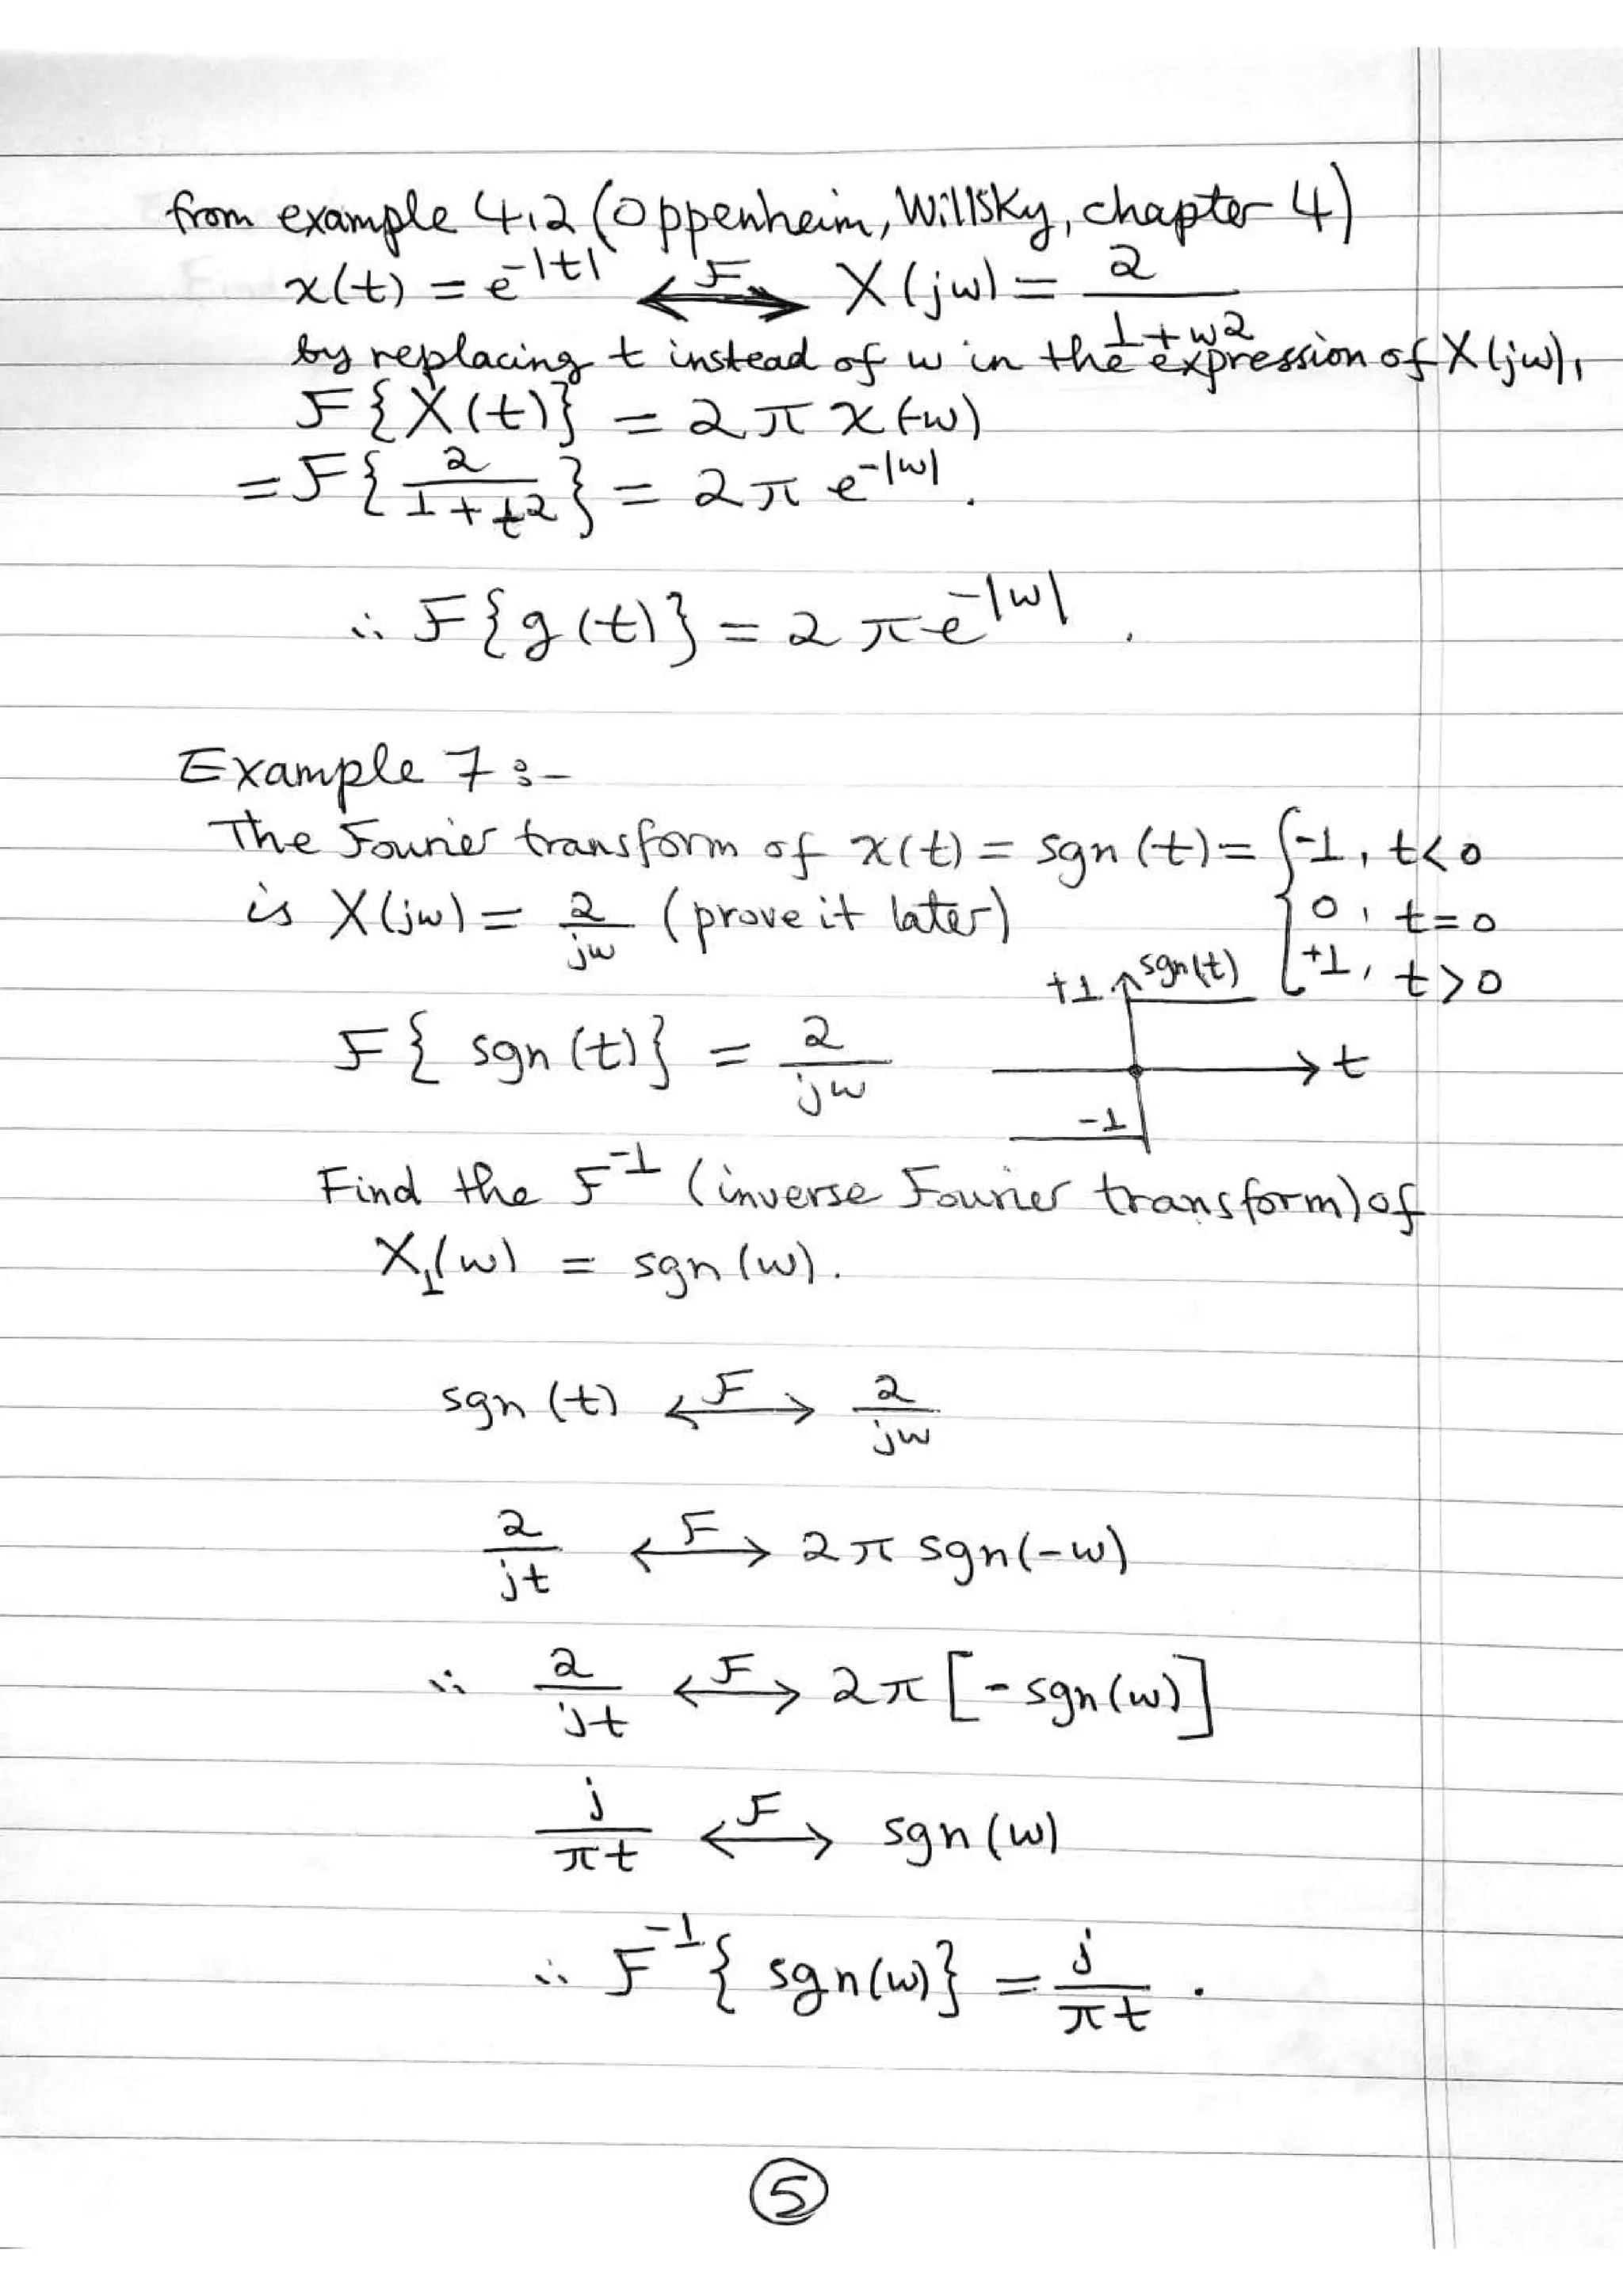 from example 4.2 (Oppenheim, Willsky, chapter 4)
x(t) = e^{-|t|} ⟷^F X(jw) = 2/(1+w^2)
by replacing t instead of w in the expression of X(jw),
F{X(t)} = 2π x(-w)
= F{2/(1+t^2)} = 2π e^{-|w|}.
∴ F{g(t)} = 2πe^{-|w|}.
Example 7:-
The Fourier transform of x(t) = sgn(t) = { -1, t<0
is X(jw) = 2/jw (prove it later) 0, t=0
+1, t>0
+1 sgn(t)
F{ sgn(t)} = 2/jw
t
-1
Find the F^{-1} (inverse Fourier transform) of
X_1(w) = sgn(w).
sgn(t) ⟷^F 2/jw
2/jt ⟷^F 2π sgn(-w)
∴ 2/jt ⟷^F 2π[-sgn(w)]
j/πt ⟷^F sgn(w)
∴ F^{-1}{ sgn(w)} = j/πt.
5